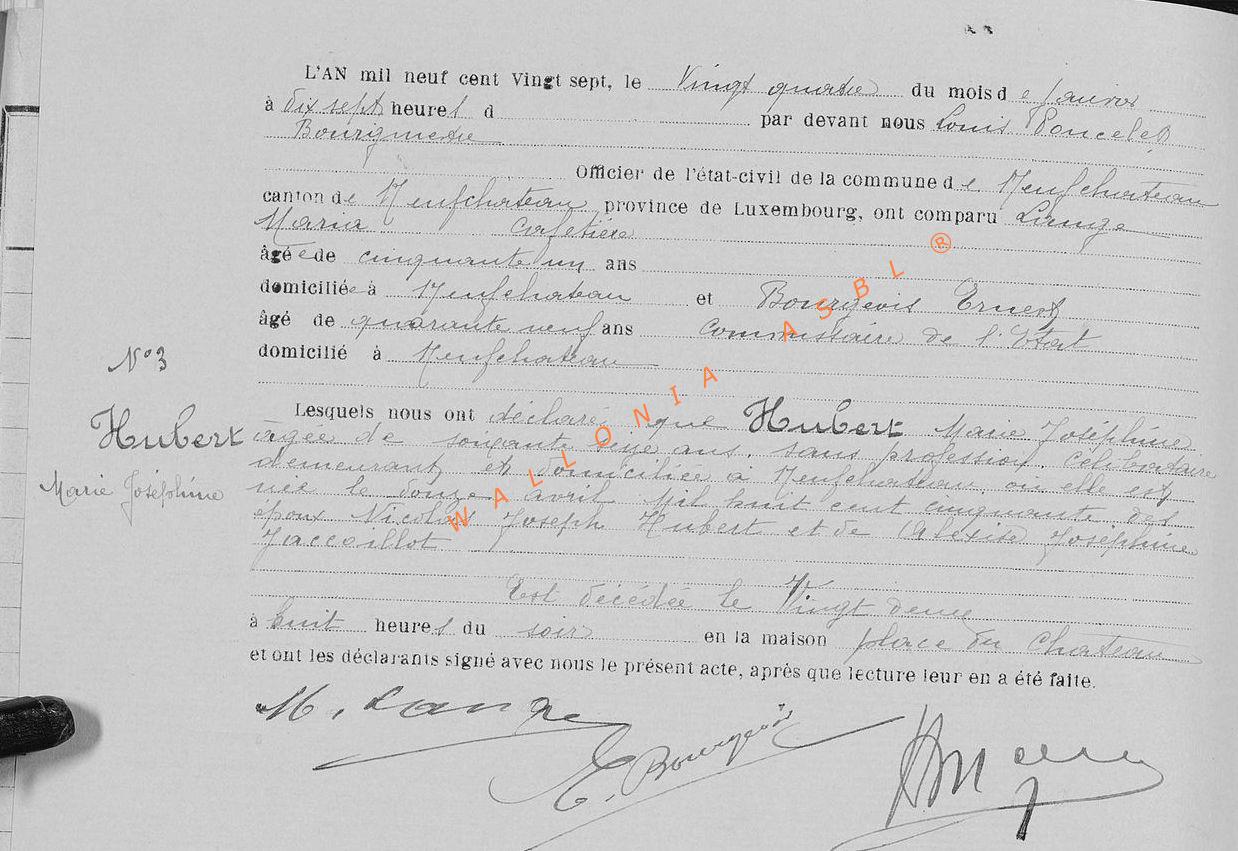 L'AN mil neuf cent Vingt sept, le Vingt quatre du mois de Janvier
à dix sept heures d par devant nous Louis Poncelet
Bourgmestre
Officier de l'état-civil de la commune de Neufchateau
canton de Neufchateau province de Luxembourg, ont comparu Lange
Maria Cafetière
âgée de cinquante un ans
domiciliée à Neufchateau et Bourgeois Ernest
âgé de quarante neuf ans Commissaire de l'Etat
domicilié à Neufchateau
N°3
Lesquels nous ont déclaré que Hubert Marie Joséphine
Hubert
agée de soixante seize ans, sans profession, célibataire
demeurant et domiciliée à Neufchateau, où elle est
Marie Joséphine
née le douze avril Mil huit cent cinquante, des
époux Nicolas Joseph Hubert et de Joséphine
Est décédée le Vingt deux
à huit heures du soir en la maison place du Chateau
et ont les déclarants signé avec nous le présent acte, après que lecture leur en a été faite.
M. Lange
E. Bourgeois
WALLONIA ASBL ®